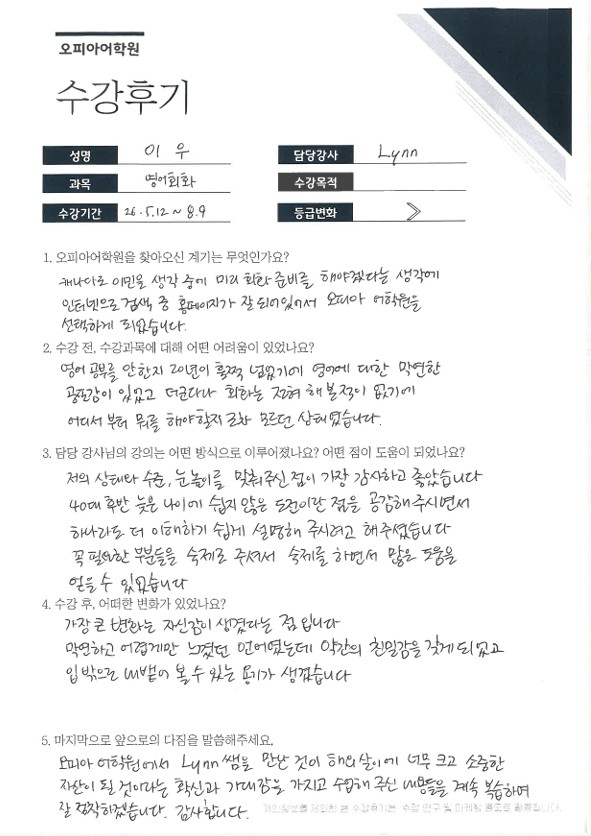 오피아어학원
수강후기
성명 이 우
담당강사 Lynn
과목 영어회화
수강목적
수강기간 26. 5. 12 ~ 8. 9
등급변화 >
1. 오피아어학원을 찾아오신 계기는 무엇인가요?
캐나다로 이민을 생각 중에 미리 회화 준비를 해야겠다는 생각에
인터넷으로 검색 중 홈페이지가 잘 되어있어서 오피아 어학원을
선택하게 되었습니다.
2. 수강 전, 수강과목에 대해 어떤 어려움이 있었나요?
영어 공부를 안한지 20년이 훌쩍 넘었기에 영어에 대한 막연한
공포감이 있었고 더군다나 회화는 전혀 해본적이 없기에
어디서 부터 뭐를 해야할지 조차 모르던 상태였습니다.
3. 담당 강사님의 강의는 어떤 방식으로 이루어졌나요? 어떤 점이 도움이 되었나요?
저의 상태와 수준, 눈높이를 맞춰주신 점이 가장 감사하고 좋았습니다
40대 후반 늦은 나이에 쉽지 않은 도전이란 점을 공감해 주시면서
하나라도 더 이해하기 쉽게 설명해 주시려고 해주셨습니다
꼭 필요한 부분들을 숙제로 주셔서 숙제를 하면서 많은 도움을
얻을 수 있었습니다
4. 수강 후, 어떠한 변화가 있었나요?
가장 큰 변화는 자신감이 생겼다는 점 입니다
막연하고 어렵게만 느꼈던 언어였는데 약간의 친밀감을 갖게 되었고
입 밖으로 내뱉어 볼 수 있는 용기가 생겼습니다
5. 마지막으로 앞으로의 다짐을 말씀해주세요.
오피아 어학원에서 Lynn 쌤을 만난 것이 해외살이에 너무 크고 소중한
자산이 될 것이라는 확신과 기대감을 가지고 수업해 주신 내용들을 계속 복습하며
잘 정착하겠습니다. 감사합니다.
개인정보를 제외한 본 수강후기는 수강 연구 및 마케팅 용도로 활용됩니다.